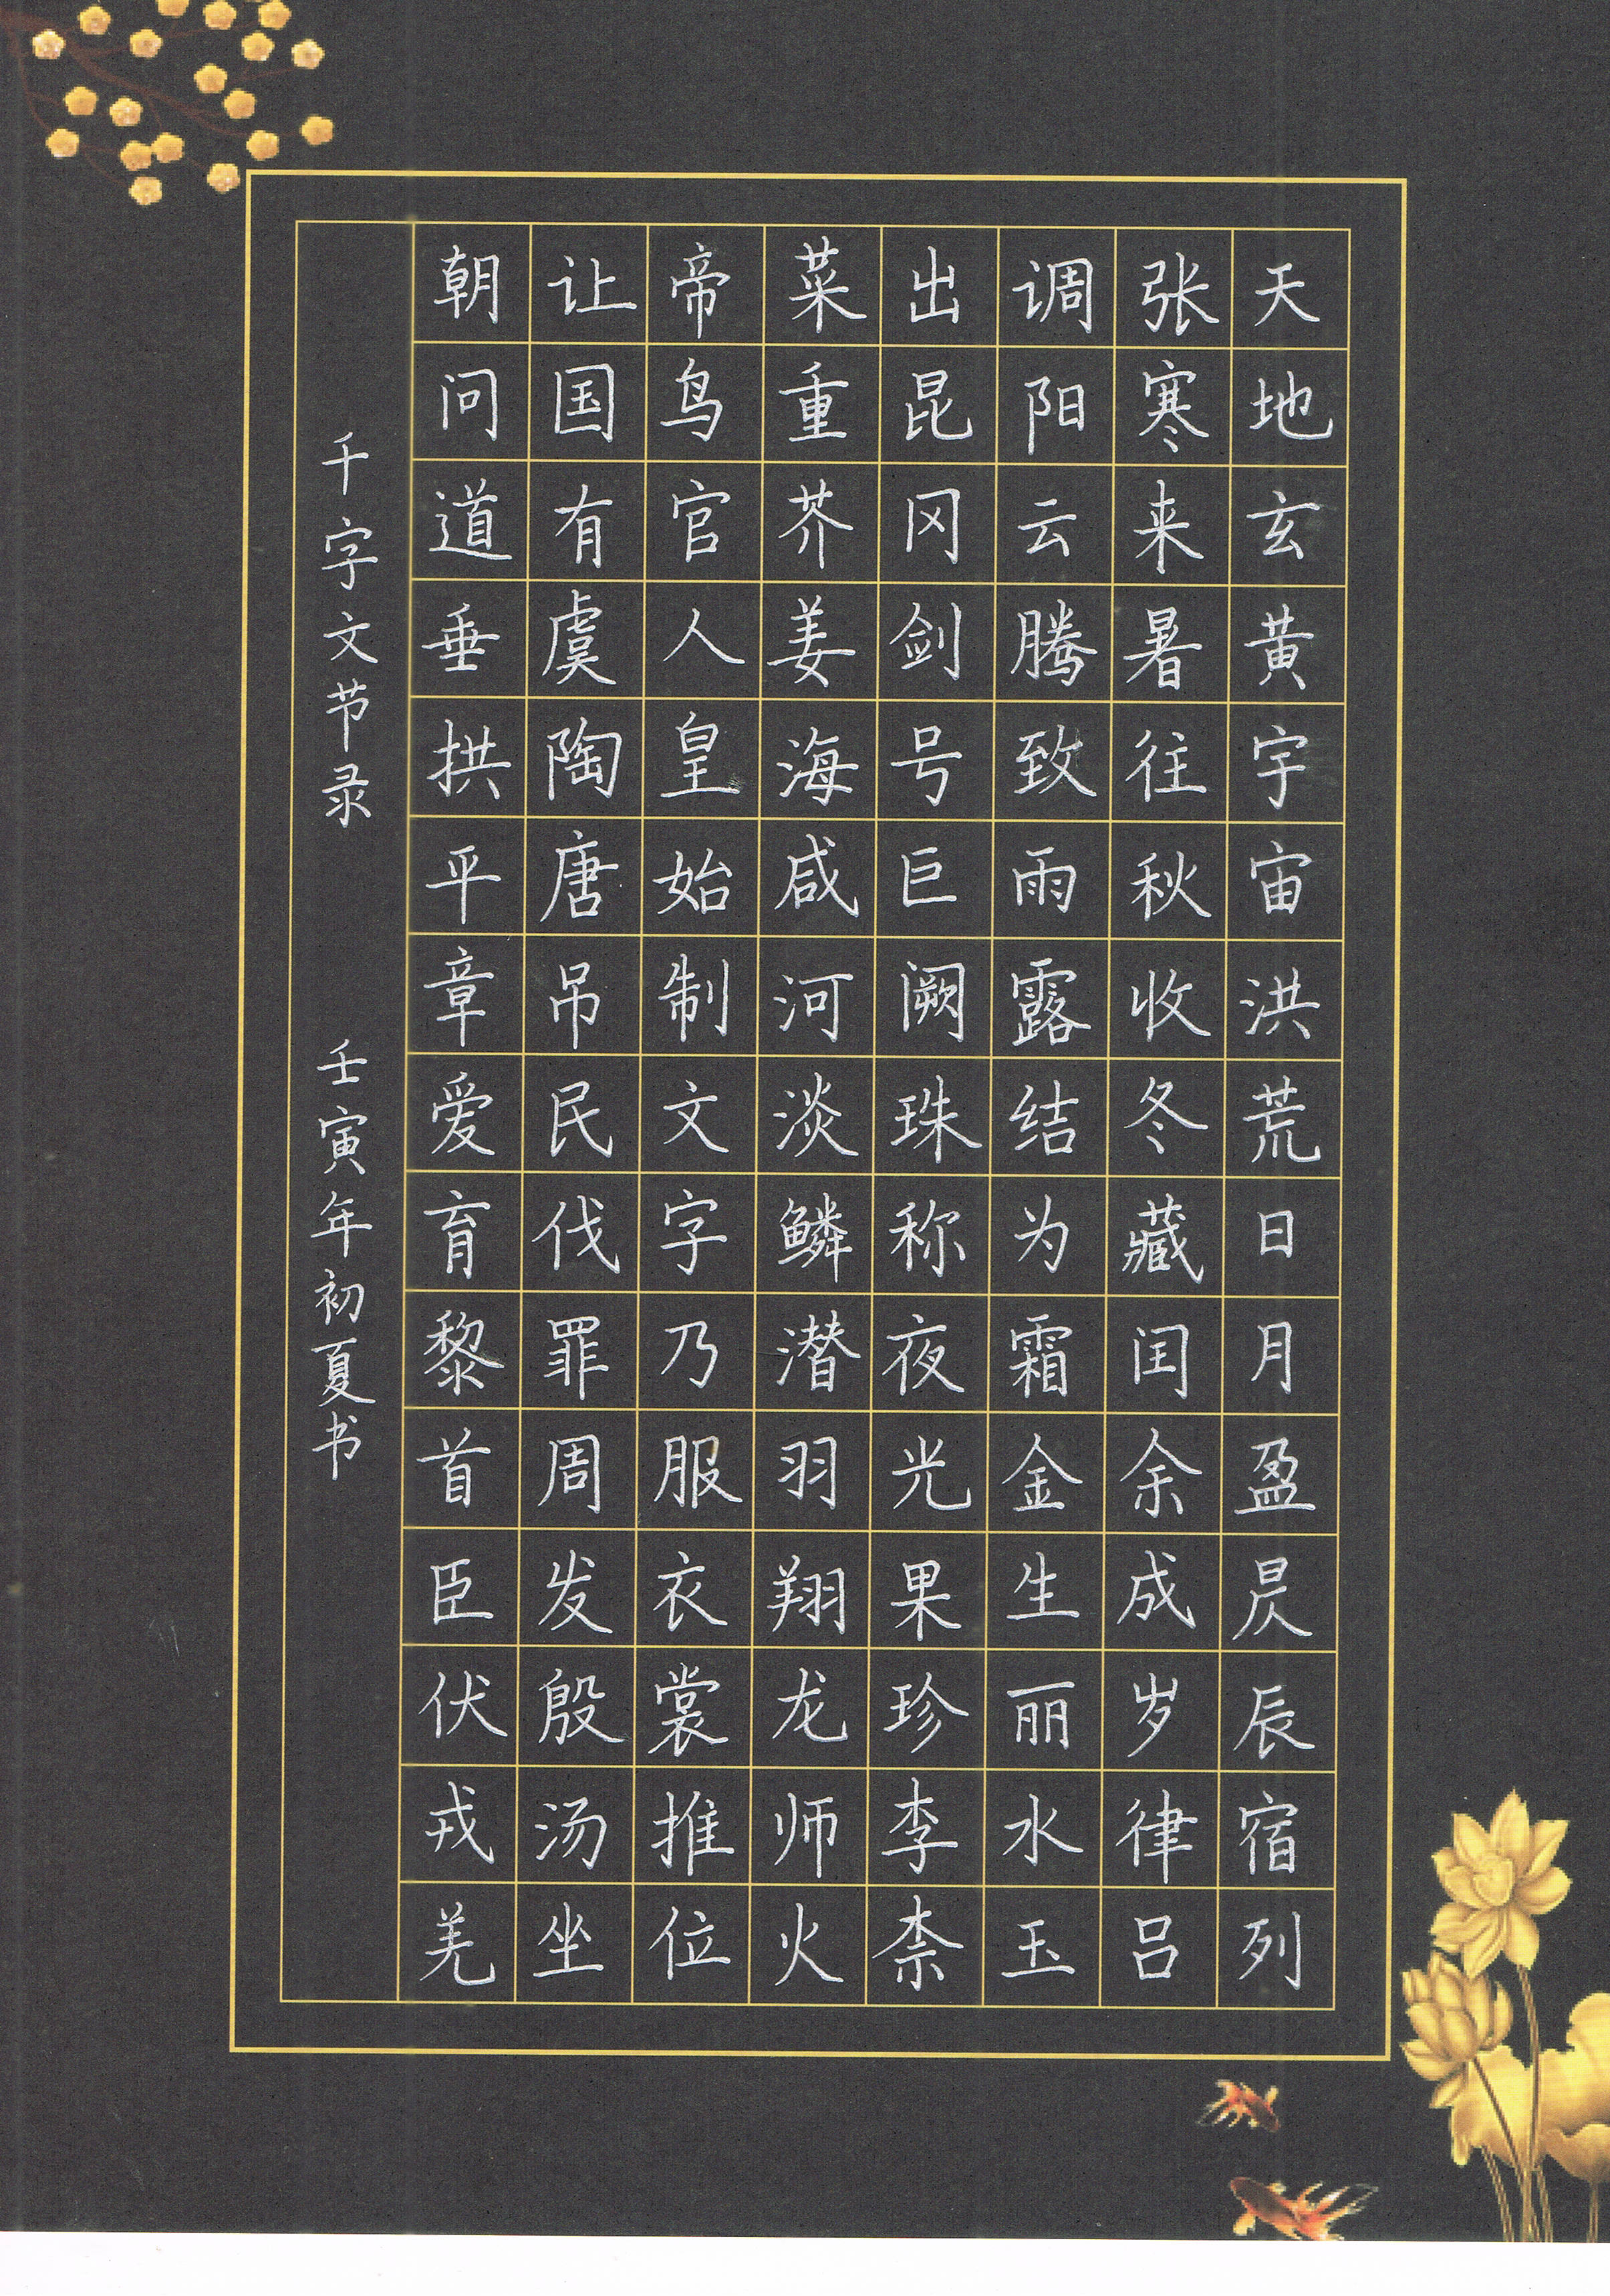 天地玄黄宇宙洪荒日月盈昃辰宿列
张寒来暑往秋收冬藏闰余成岁律吕
调阳云腾致雨露结为霜金生丽水玉
出昆冈剑号巨阙珠称夜光果珍李柰
菜重芥姜海咸河淡鳞潜羽翔龙师火
帝鸟官人皇始制文字乃服衣裳推位
让国有虞陶唐吊民伐罪周发殷汤坐
朝问道垂拱平章爱育黎首臣伏戎羌
千字文节录 壬寅年初夏书